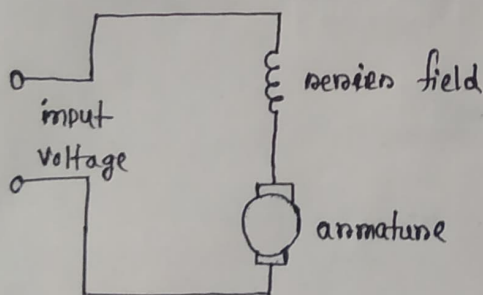 series field
input
voltage
armature